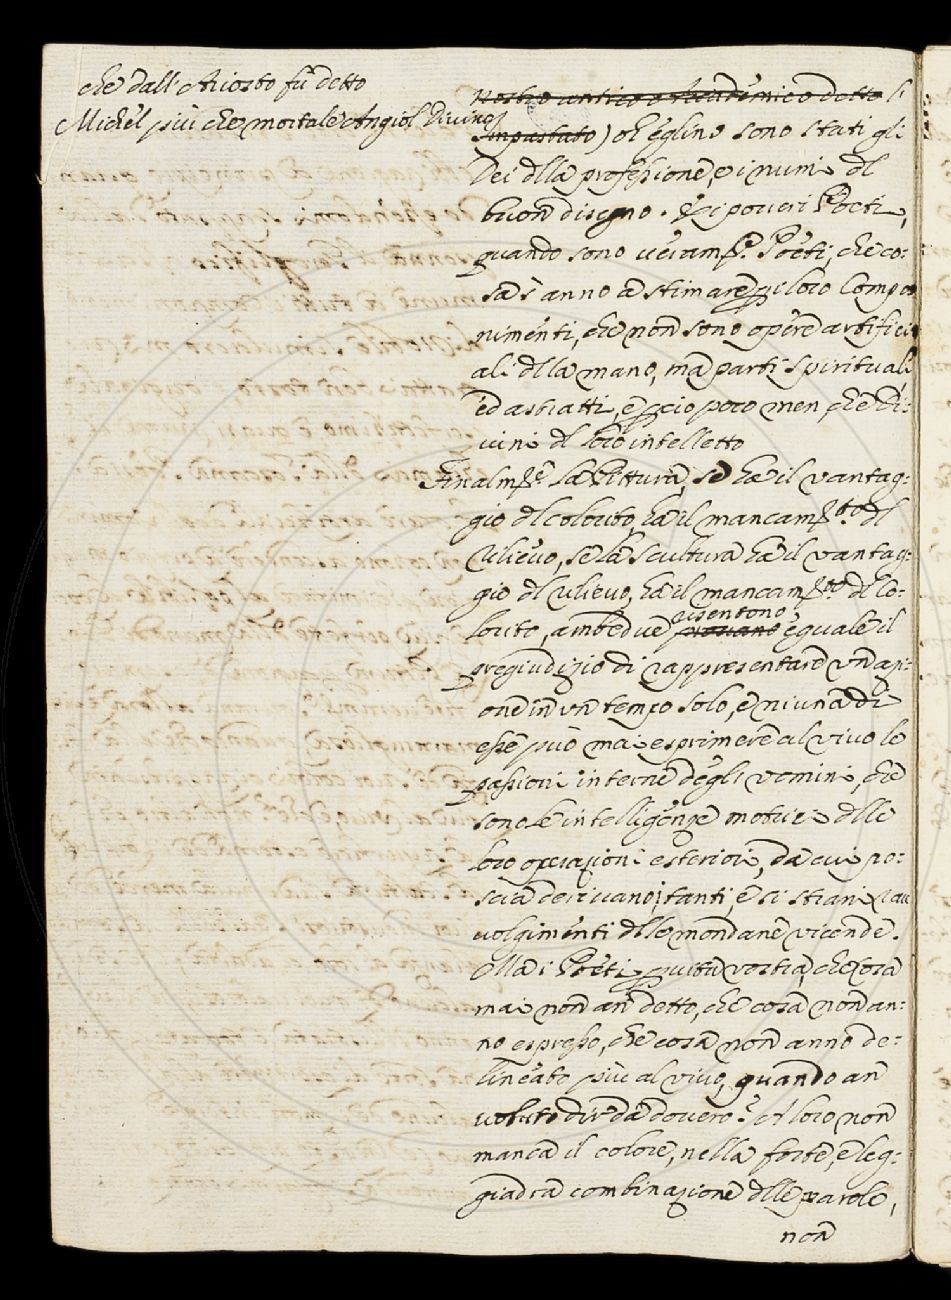 che dall'Ariosto fù detto
Michel più che mortale Angiol Divino
Nostro antico Accademico detto l'
Impastato) ch'eglino sono stati gli
Dei dlla professione, e i numi dl
buon disegno. E i poveri Poeti,
quando sono veramte. Poeti, che co:
sa s'anno a stimare p i loro Compo
nimenti, che non sono opere artifici
ali dlla mano, ma parti spirituali
ed astratti, e p ciò poco men, che Di:
vini dl loro intelletto
Finalmte. la Pittura, se ha il vantag:
gio dl colorito, ha il mancamto. dl
rilievo, se la Scultura ha il vantag:
gio dl rilievo, ha il mancamto. dl co:
lorito, ambedue
risentono
provano eguale il
pregiudizio di rappresentare un azi:
one in un tempo solo, e niuna di
esse può mai esprimere al vivo le
passioni interne degli uomini, che
sono le intelligenze motrici dlle
loro operazioni esteriori, da cui po:
scia derivano i tanti, e sì strani rav
volgimenti dlle mondane vicende.
Ma i Poeti p vita vostra, che cosa
mai non an detto, che cosa non an:
no espresso, che cosa non anno de:
lineato più al vivo, quando an
voluto dir da dovero? A loro non
manca il colore, nella forte, e leg:
giadra combinazione dlle parole,
non